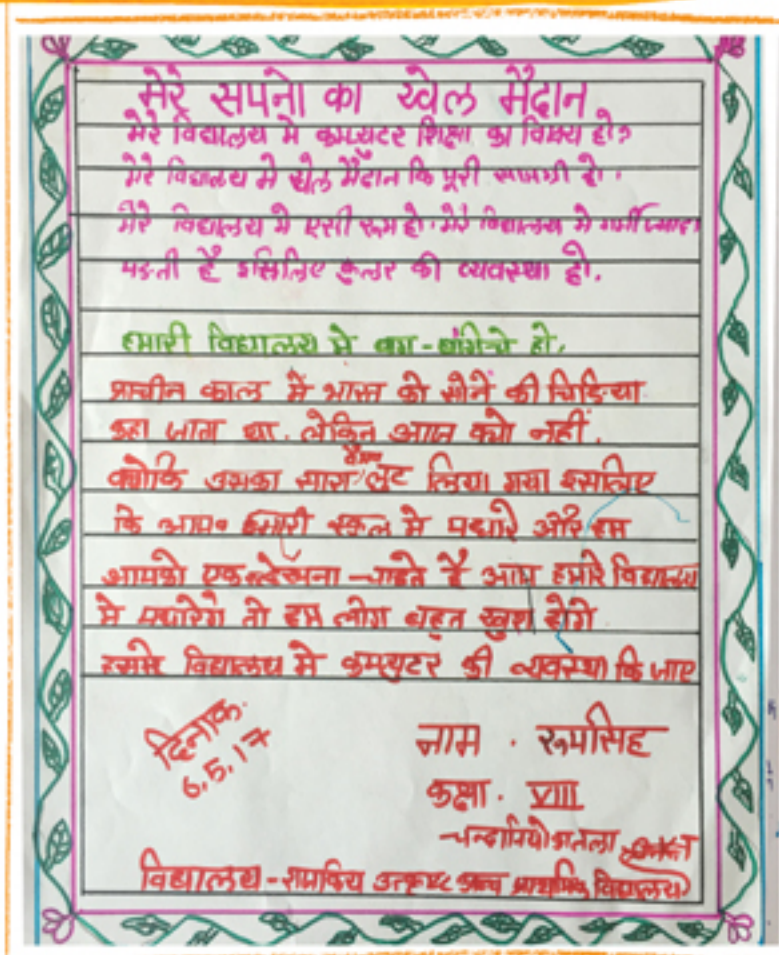 मेरे सपनो का खेल मैदान
मेरे विद्यालय मे कम्प्युटर शिक्षा का विषय हो?
मेरे विद्यालय मे खेल मैदान कि पूरी सामग्री हो।
मेरे विद्यालय मे एसी रूम हो। मेरे विद्यालय मे गर्मी ज्यादा
पड़ती है इसिलिए कुलर की व्यवस्था हो.
हमारी विद्यालय मे बाग-बगिचे हो.
प्राचीन काल में भारत को सोने की चिडिया
कहा जाता था. लेकिन आज क्यो नहीं.
क्योकि उसका सारा लुट लिया गया इसलिए
कि आप हमारी स्कुल मे पधारे और हम
आपको देखना चाहते है आप हमारे विद्यालय
मे पधारेगे तो हम लोग बहुत खुश होगे
हमारे विद्यालय मे कम्प्युटर की व्यवस्था कि जाए
दिनाक.
6.5.17
नाम . रूपसिह
कक्षा. VIII
विद्यालय - राजकिय उत्कृष्ट उच्च प्राथमिक विद्यालय